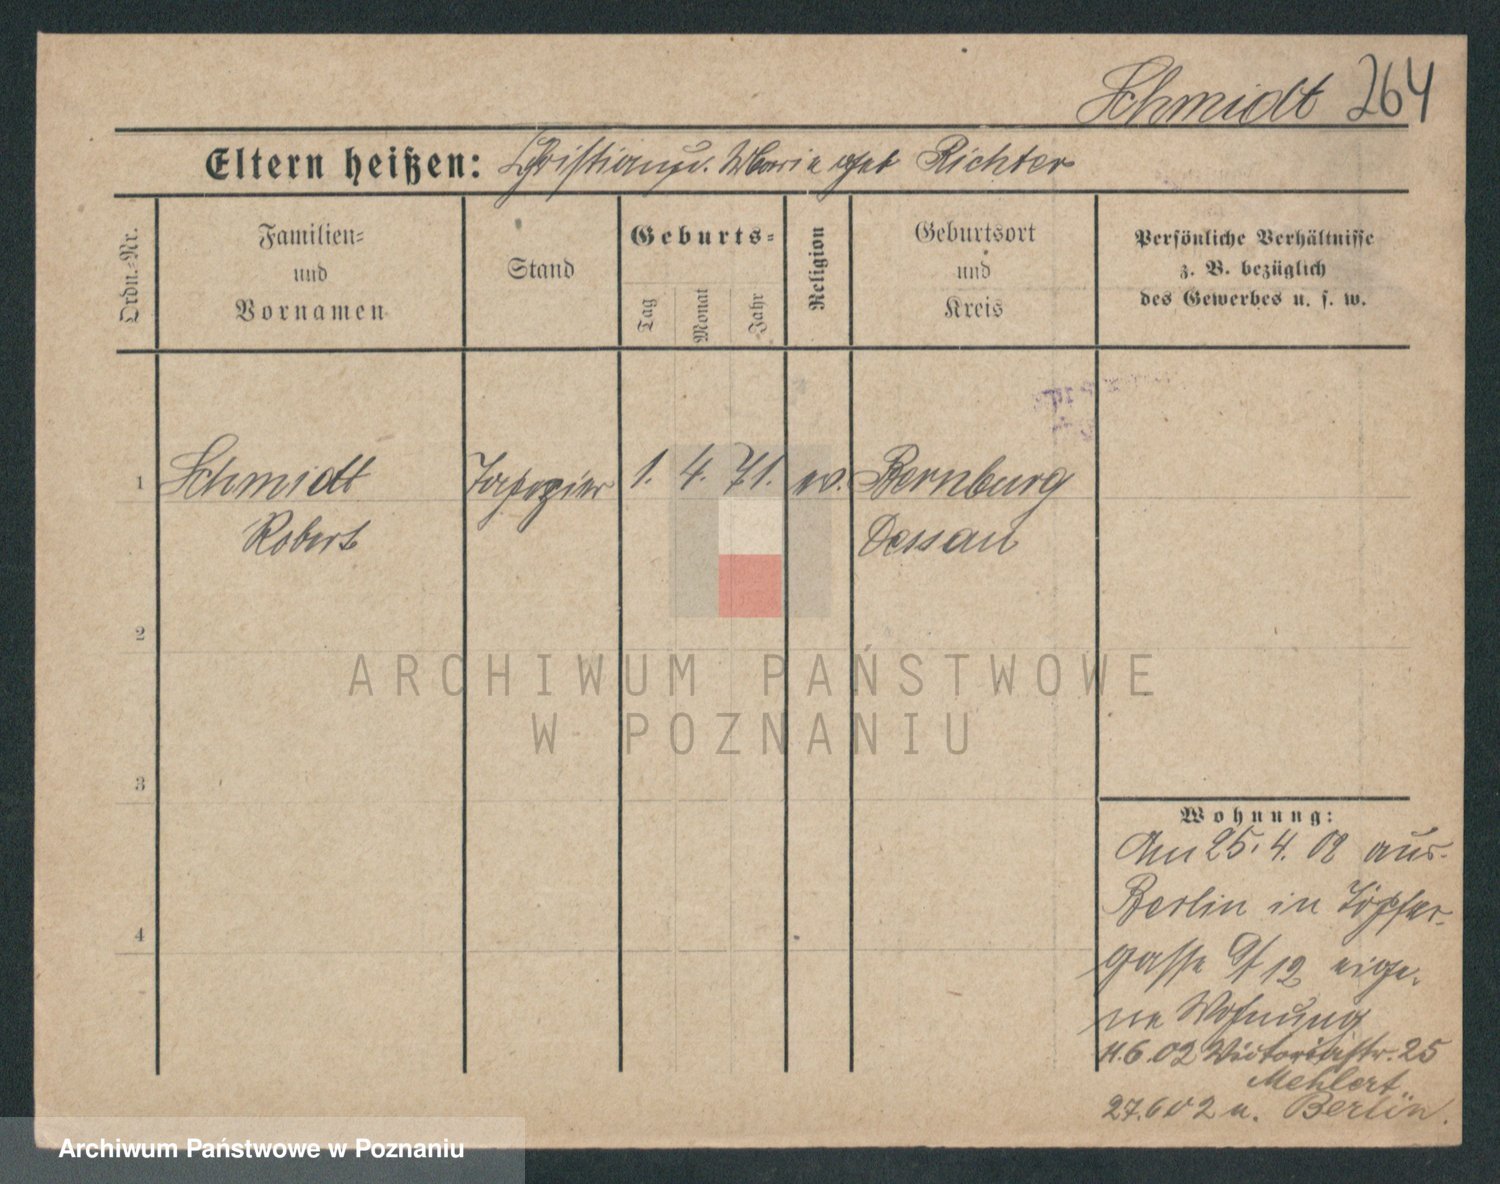 Schmidt 264
Eltern heißen: Christian u. Marie geb Richter
Ordn.-Nr.
Familien-
und
Vornamen
Stand
Geburts-
Tag
Monat
Jahr
Religion
Geburtsort
und
Kreis
Persönliche Verhältnisse
z. B. bezüglich
des Gewerbes u. s. w.
1 Schmidt Tapezier 1. 4. 71. ev. Bernburg
Robert Dessau
2
ARCHIWUM PAŃSTWOWE
W POZNANIU
3
4
Wohnung:
Am 25.4.02 aus
Berlin in Töpfer-
gasse 12 eige-
ne Wohnung
11.6.02 Victoriastr. 25
Mehlert
27.6 02 n. Berlin.
Archiwum Państwowe w Poznaniu